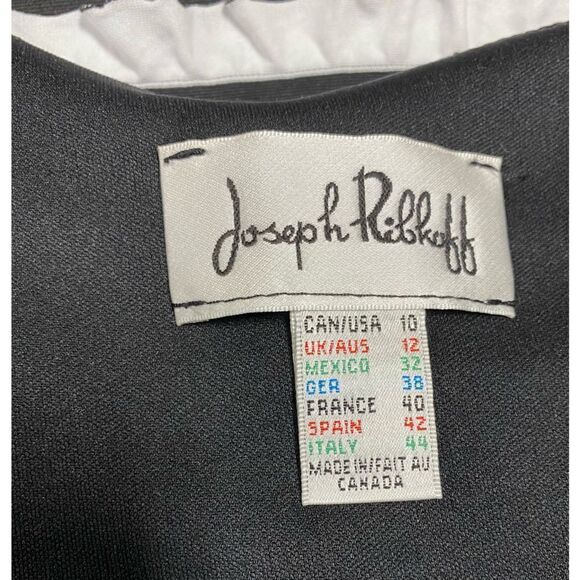 Joseph Ribkoff
CAN/USA 10
UK/AUS 12
MEXICO 32
GER 38
FRANCE 40
SPAIN 42
ITALY 44
MADE IN/FAIT AU
CANADA